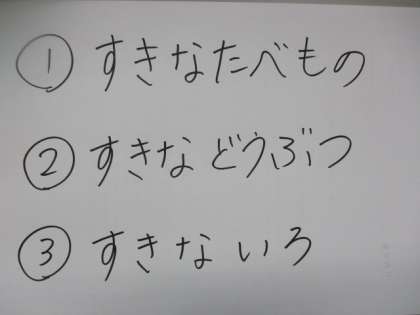 ① すきなたべもの
② すきなどうぶつ
③ すきないろ